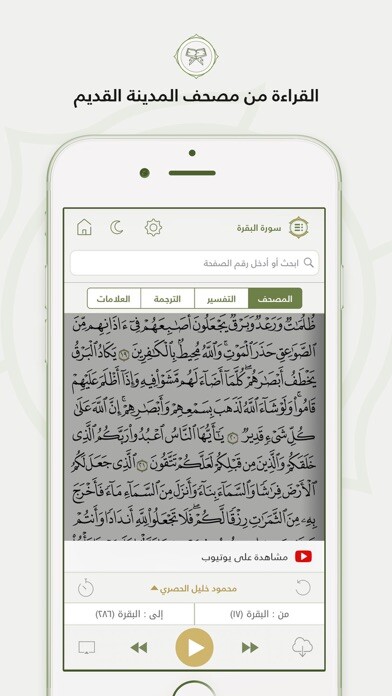 القراءة من مصحف المدينة القديم
سورة البقرة
ابحث أو أدخل رقم الصفحة
المصحف التفسير الترجمة العلامات
ظُلُمَٰتٌ وَرَعْدٌ وَبَرْقٌ يَجْعَلُونَ أَصَٰبِعَهُمْ فِىٓ ءَاذَانِهِم مِّنَ
ٱلصَّوَٰعِقِ حَذَرَ ٱلْمَوْتِ ۚ وَٱللَّهُ مُحِيطٌۢ بِٱلْكَٰفِرِينَ ١٩ يَكَادُ ٱلْبَرْقُ
يَخْطَفُ أَبْصَٰرَهُمْ ۖ كُلَّمَآ أَضَآءَ لَهُم مَّشَوْا۟ فِيهِ وَإِذَآ أَظْلَمَ عَلَيْهِمْ
قَامُوا۟ ۚ وَلَوْ شَآءَ ٱللَّهُ لَذَهَبَ بِسَمْعِهِمْ وَأَبْصَٰرِهِمْ ۚ إِنَّ ٱللَّهَ عَلَىٰ
كُلِّ شَىْءٍ قَدِيرٌ ٢٠ يَٰٓأَيُّهَا ٱلنَّاسُ ٱعْبُدُوا۟ رَبَّكُمُ ٱلَّذِى
خَلَقَكُمْ وَٱلَّذِينَ مِن قَبْلِكُمْ لَعَلَّكُمْ تَتَّقُونَ ٢١ ٱلَّذِى جَعَلَ لَكُمُ
ٱلْأَرْضَ فِرَٰشًا وَٱلسَّمَآءَ بِنَآءً وَأَنزَلَ مِنَ ٱلسَّمَآءِ مَآءً فَأَخْرَجَ
بِهِۦ مِنَ ٱلثَّمَرَٰتِ رِزْقًا لَّكُمْ ۖ فَلَا تَجْعَلُوا۟ لِلَّهِ أَندَادًا وَأَنتُمْ
مشاهدة على يوتيوب
محمود خليل الحصري
من : البقرة (١٧) إلى : البقرة (٢٨٦)